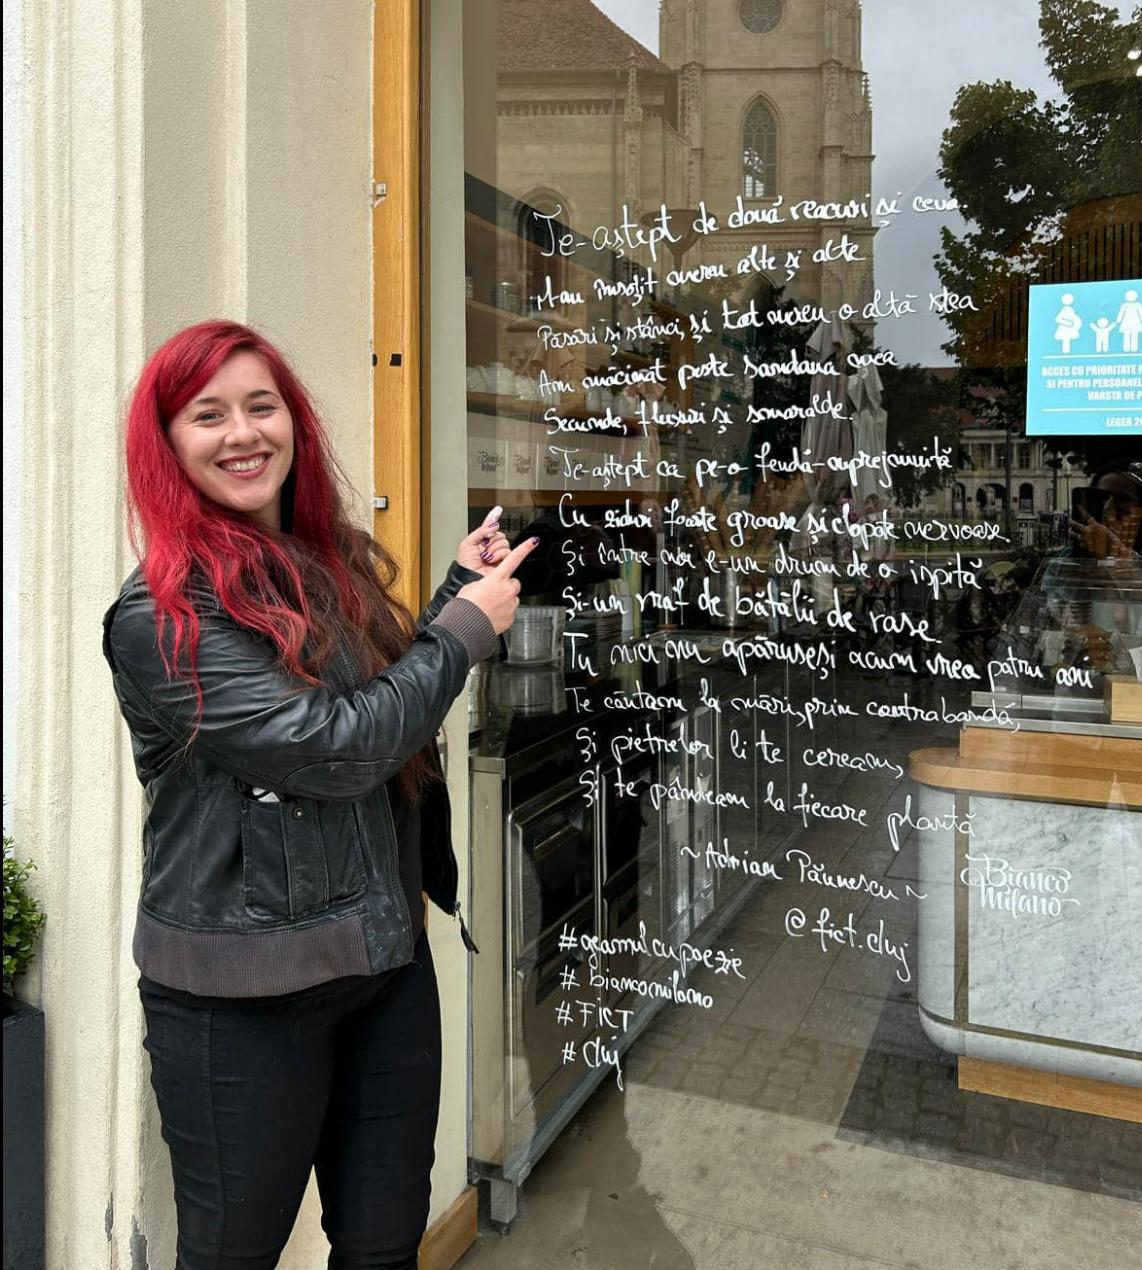 Te-aștept de două reacuri și ceva.
M-au însoțit mereu alte și alte
Păsări și stânci, și tot mereu o altă stea
Am măcinat peste sandaua mea
Secunde, fluturi și smaralde.
Te-aștept ca pe-o feudă-mprejmuită
Cu ziduri foarte groase și clopote nervoase
Și între noi e-un drum de o ispită
Și-un vraf de bătălii de rase.
Tu nici nu apăruseși acum vreo patru ani
Te căutam la mări, prin contrabandă,
Și pietrelor li te ceream,
Și te pândeam la fiecare plantă
~Adrian Păunescu~
@fict.cluj
#geamulcupoezie
#biancomilano
#FicT
#cluj
Bianco
Milano
ACCES CU PRIORITATE
SI PENTRU PERSOANE
VARSTA DE
LEGEA